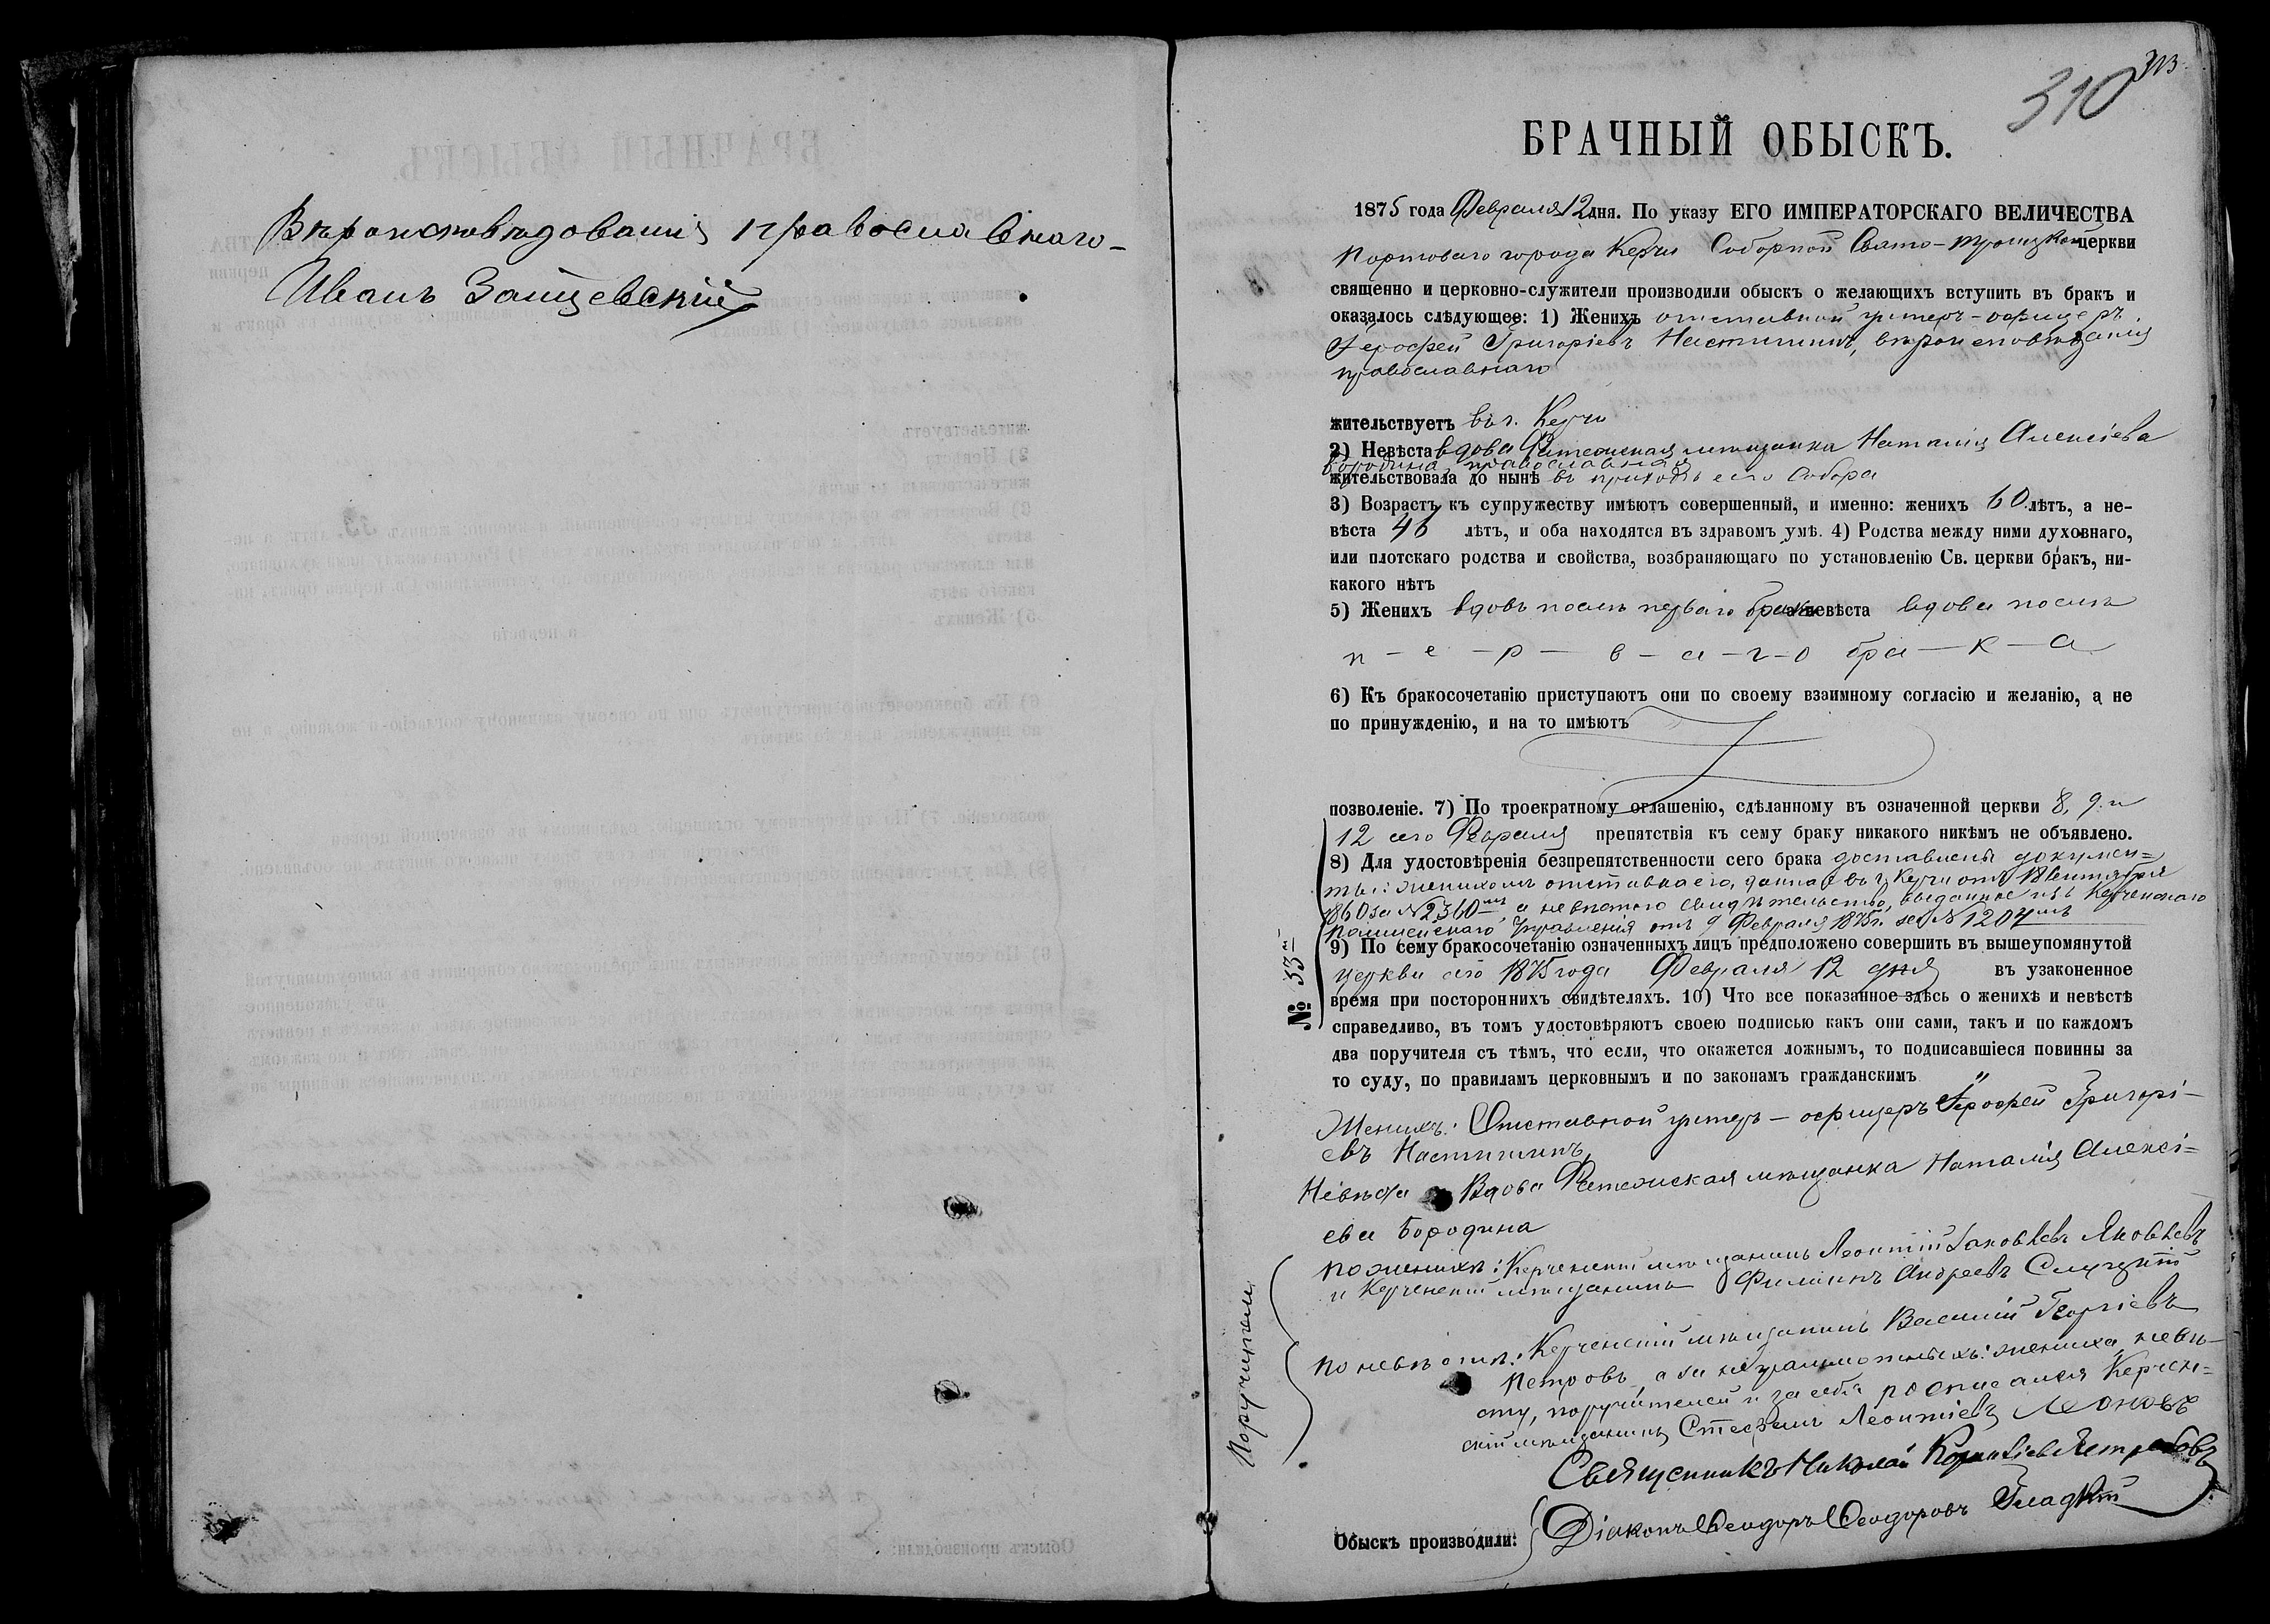 Вѣроисповѣданія православнаго
Иванъ Защевскій
313
310
БРАЧНЫЙ ОБЫСКЪ.
1875 года Февраля 12 дня. По указу ЕГО ИМПЕРАТОРСКАГО ВЕЛИЧЕСТВА
Портоваго города Керчи Соборной Свято-Троицкой церкви
священно и церковно-служители производили обыскъ о желающихъ вступить въ бракъ и
оказалось слѣдующее: 1) Женихъ отставной унтеръ-офицеръ
Ѓерофей Григоріевъ Настинъ, вѣроисповѣданія
православнаго
жительствуетъ въ г. Керчи
2) Невѣста вдова мѣщанка Наталія Алексіева
Бородина, православная
жительствовала до нынѣ въ приходѣ сего Собора
3) Возрастъ къ супружеству имѣютъ совершенный, и именно: женихъ 60 лѣтъ, а не-
вѣста 46 лѣтъ, и оба находятся въ здравомъ умѣ. 4) Родства между ними духовнаго,
или плотскаго родства и свойства, возбраняющаго по установленію Св. церкви бракъ, ни-
какого нѣтъ
5) Женихъ вдовъ послѣ перваго брака а невѣста вдова послѣ
п-е-р-в-а-г-о бра-к-а
6) Къ бракосочетанію приступаютъ они по своему взаимному согласію и желанію, а не
по принужденію, и на то имѣютъ
позволеніе. 7) По троекратному оглашенію, сдѣланному въ означенной церкви 8, 9 и
12 сего Февраля препятствія къ сему браку никакого никѣмъ не объявлено.
8) Для удостовѣренія безпрепятственности сего брака доставлены докумен=
ты: женихомъ отставка его, данная въ г. Керчи отъ
1860 за № 2360мъ, а невѣстою свидѣтельство, выданное изъ Керченскаго
Полицейскаго Управленія отъ 9 Февраля 1875 г. за № 1204мъ
9) По сему бракосочетанію означенныхъ лицъ предположено совершить въ вышеупомянутой
церкви сего 1875 года Февраля 12 дня въ узаконенное
время при постороннихъ свидѣтеляхъ. 10) Что все показанное здѣсь о женихѣ и невѣстѣ
справедливо, въ томъ удостовѣряютъ своею подписью какъ они сами, такъ и по каждомъ
два поручителя съ тѣмъ, что если, что окажется ложнымъ, то подписавшіеся повинны за
то суду, по правиламъ церковнымъ и по законамъ гражданскимъ
№ 33й
Женихъ: Отставной унтеръ-офицеръ Герофей Григорі-
евъ
Невѣста Вдова мѣщанка Наталія Алексі=
ева Бородина
Поручители
по женихѣ: Керченскій мѣщанинъ Леонтій Іаковлевъ Яковлевъ
и Керченскій мѣщанинъ Филиппъ Андреевъ Слуцкій
по невѣстѣ: Керченскій мѣщанинъ Василій Георгіевъ
Петровъ а за неграмотныхъ: жениха, невѣ-
сту, поручителей и за себя росписался Керчен=
скій мѣщанинъ Стефанъ Леонтіевъ
Священникъ Николай Ястребовъ
Обыскъ производили: Діаконъ Ѳеодоръ Ѳеодоровъ Гладкій